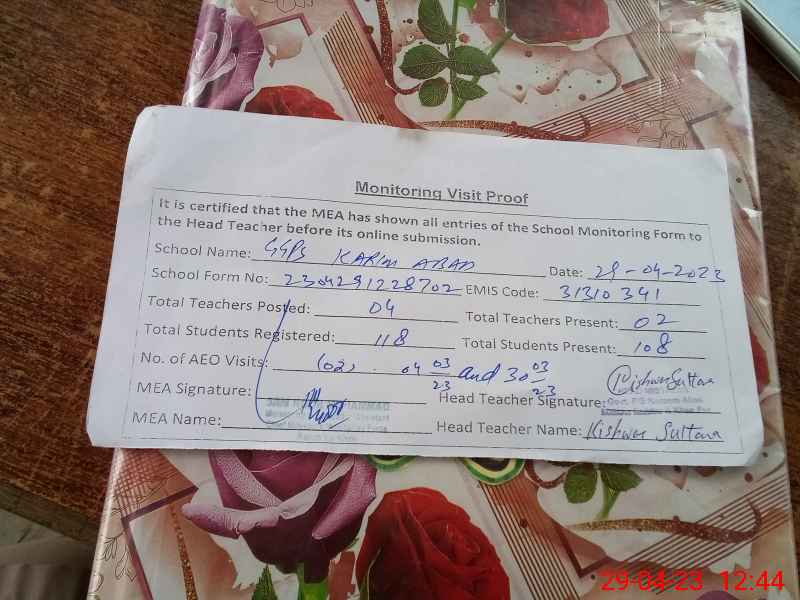 Monitoring Visit Proof
It is certified that the MEA has shown all entries of the School Monitoring Form to
the Head Teacher before its online submission.
School Name: GGPS KARIM ABAD Date: 29-04-2023
School Form No: 2304291228702 EMIS Code: 31310341
Total Teachers Posted: 04 Total Teachers Present: 02
Total Students Registered: 118 Total Students Present: 108
No. of AEO Visits: (02). 04 03/23 and 30 03/23
MEA Signature: Head Teacher Signature: Kishwar Sultana
MEA Name: Head Teacher Name: Kishwar Sultana
29-04-23 12:44